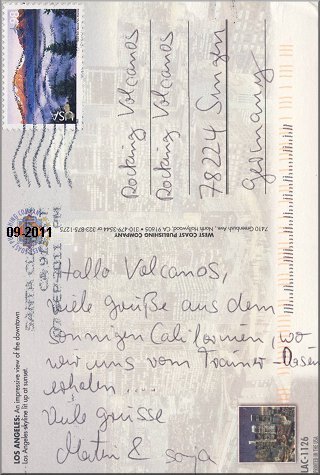 Hallo Volcanos,
viele Grüße aus dem
sonnigen Californien, wo
wir uns vom Trainer-Dasein
erholen ....
Viele Grüsse
Martin & Sonja
Rocking Volcanos
Rocking Volcanos
78224 Singen
Germany
USA
09.2011
SANTA CLARITA
CA 913
07 SEP 2011 PM
WEST COAST PUBLISHING COMPANY
7410 Greenbush Ave., North Hollywood, CA 91605 • 310-479-3544 or 323-875-1275
LOS ANGELES: An impressive view of the downtown
Los Angeles skyline lit up at sunset.
LAC-1126